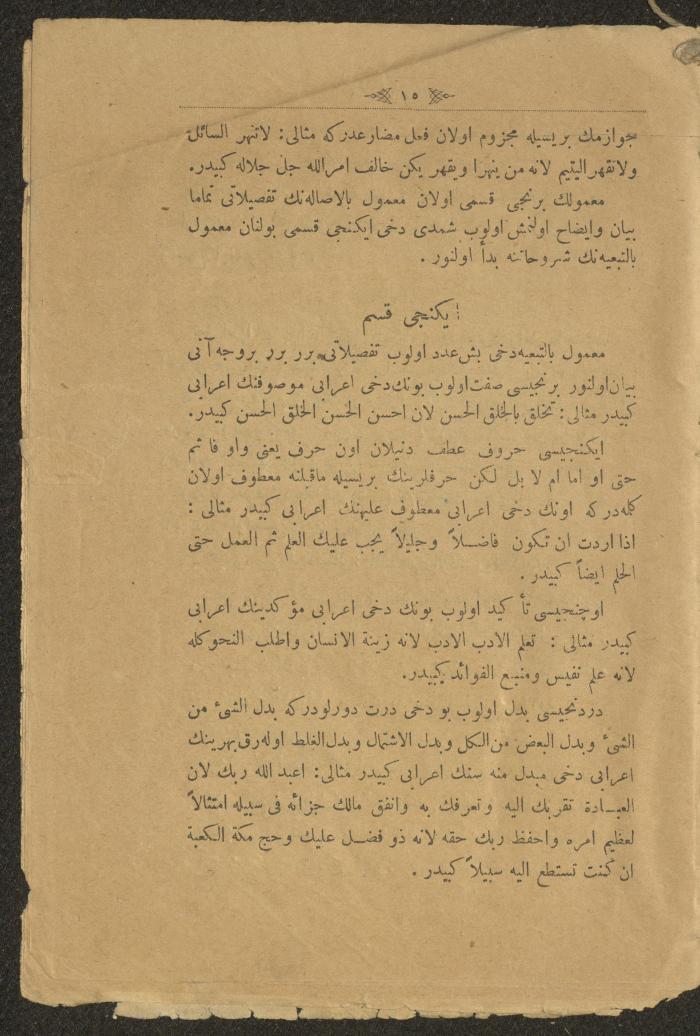 ١٥
جوازمك بریسیله مجزوم اولان فعل مضارعدركه مثالی : لاتنهر السائل
ولاتقهر الیتیم لانه من ینهرا ویقهر یكن خالف امرالله جل جلاله كبیدر.
معمولك برنجی قسمی اولان معمول بالاصاله‌نك تفصیلاتی تماما
بیان وایضاح اولنمش اولوب شمدی دخی ایكنجی قسمی بولنان معمول
بالتبعیه‌نك شروحاتنه بدأ اولنور .
ایكنجی قسم
معمول بالتبعیه دخی بش عدد اولوب تفصیلاتی برر برر بروجه آتی
بیان اولنور برنجیسی صفت اولوب بونك دخی اعرابی موصوفنك اعرابی
كبیدر مثالی : تخلق بالخلق الحسن لان احسن الحسن الخلق الحسن كبیدر.
ایكنجیسی حروف عطف دنیلان اون حرف یعنی واو فا ثم
حتی او اما ام لا بل لكن حرفلرینك بریسیله ماقبلنه معطوف اولان
كله‌دركه اونك دخی اعرابی معطوف علیهنك اعرابی كبیدر مثالی :
اذا اردت ان تكون فاضلاً وجلیلاً یجب علیك العلم ثم العمل حتی
الحلم ایضاً كبیدر .
اوچنجیسی تأكید اولوب بونك دخی اعرابی مؤكدینك اعرابی
كبیدر مثالی : تعلم الادب الادب لانه زینة الانسان واطلب النحوكله
لانه علم نفیس ومنبع الفوائد كبیدر.
دردنجیسی بدل اولوب بو دخی درت دورلودركه بدل الشیٔ من
الشیٔ وبدل البعض من الكل وبدل الاشتمال وبدل الغلط اوله‌رق بهرینك
اعرابی دخی مبدل منه سنك اعرابی كبیدر مثالی : اعبد الله ربك لان
العبادة تقربك الیه وتعرفك به وانفق مالك جزائه فی سبیله امتثالاً
لعظیم امره واحفظ ربك حقه لانه ذو فضل علیك وحج مكة الكعبة
ان كنت تستطع الیه سبیلاً كبیدر .